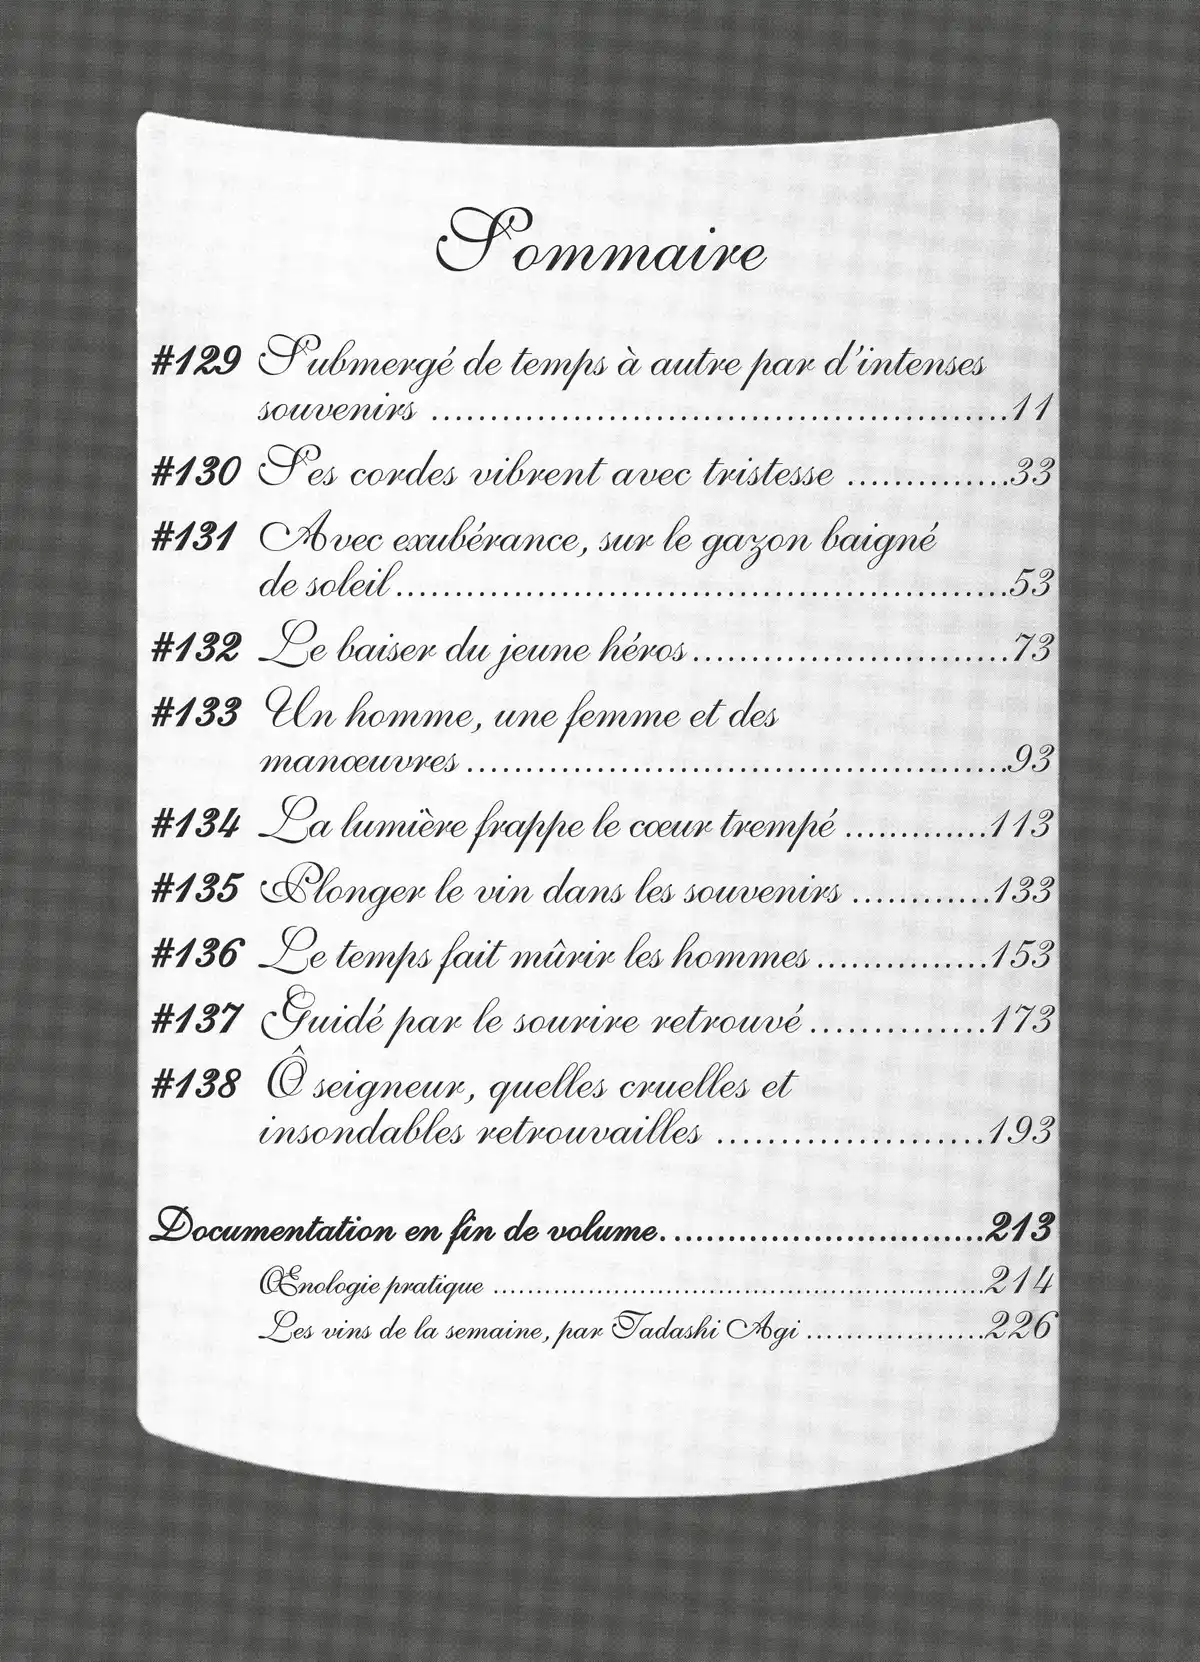 Sommaire
#129 Submergé de temps à autre par d'intenses
souvenirs ................................................11
#130 Ses cordes vibrent avec tristesse ..............33
#131 Avec exubérance, sur le gazon baigné
de soleil....................................................53
#132 Le baiser du jeune héros...........................73
#133 Un homme, une femme et des
manœuvres..............................................93
#134 La lumière frappe le cœur trempé .............113
#135 Plonger le vin dans les souvenirs ............133
#136 Le temps fait mûrir les hommes...............153
#137 Guidé par le sourire retrouvé................173
#138 Ô seigneur, quelles cruelles et
insondables retrouvailles ......................193
Documentation en fin de volume...............................213
Œnologie pratique ......................................................214
Les vins de la semaine, par Tadashi Agi ...................226